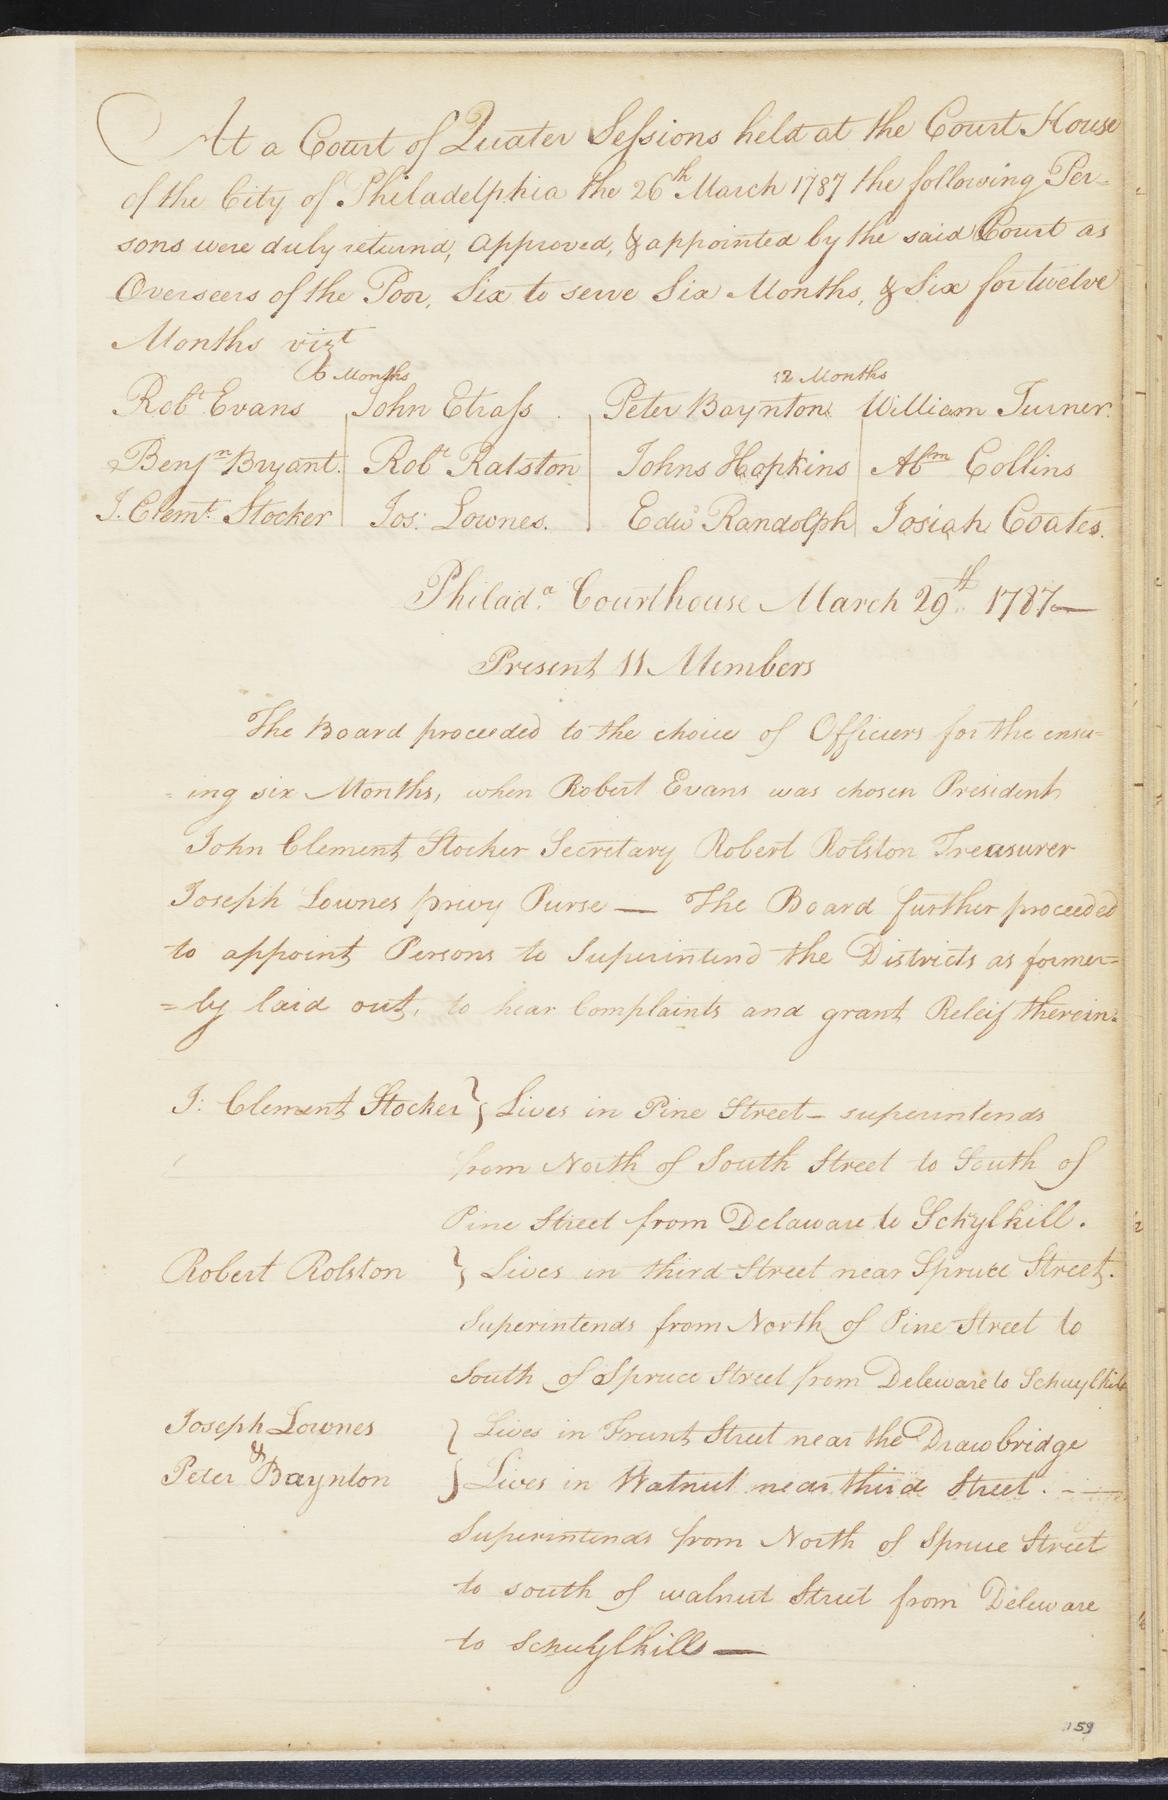 At a Court of Quater Sessions held at the Court House
of the City of Philadelphia the 26th March 1787 the following Per-
sons were duly returnd, Approved, & appointed by the said Court as
Overseers of the Poor, Six to serve Six Months, & Six for twelve
Months vizt
6 Months 12 Months
Robt Evans John Strass Peter Baynton William Turner.
Benjn Bryant. Robt Ralston Johns Hopkins Abm Collins
J. Clemt. Stocker Jos: Lownes. Edwd Randolph Josiah Coates.
Philada. Courthouse March 29th 1787—
Present 11 Members
The Board proceeded to the choice of Officers for the ensu=
=ing six Months, when Robert Evans was chosen President
John Clement Stocker Secretary Robert Rolston Treasurer
Joseph Lownes privy Purse — The Board further proceeded
to appoint Persons to Superintend the Districts as former=
=ly laid out, to hear Complaints and grant Releif therein.
J: Clement Stocker } Lives in Pine Street – superintends
from North of South Street to South of
Pine Street from Delaware to Schylkill.
Robert Rolston } Lives in third Street near Spruce Street.
Superintends from North of Pine Street to
South of Spruce Street from Deleware to Schuylkill
Joseph Lownes } Lives in Frunt Street near the Drawbridge
&
Peter Baynton } Lives in Walnut near third Street. –
Superintends from North of Spruce Street
to south of walnut Street from Deleware
to Schuylkills —
159